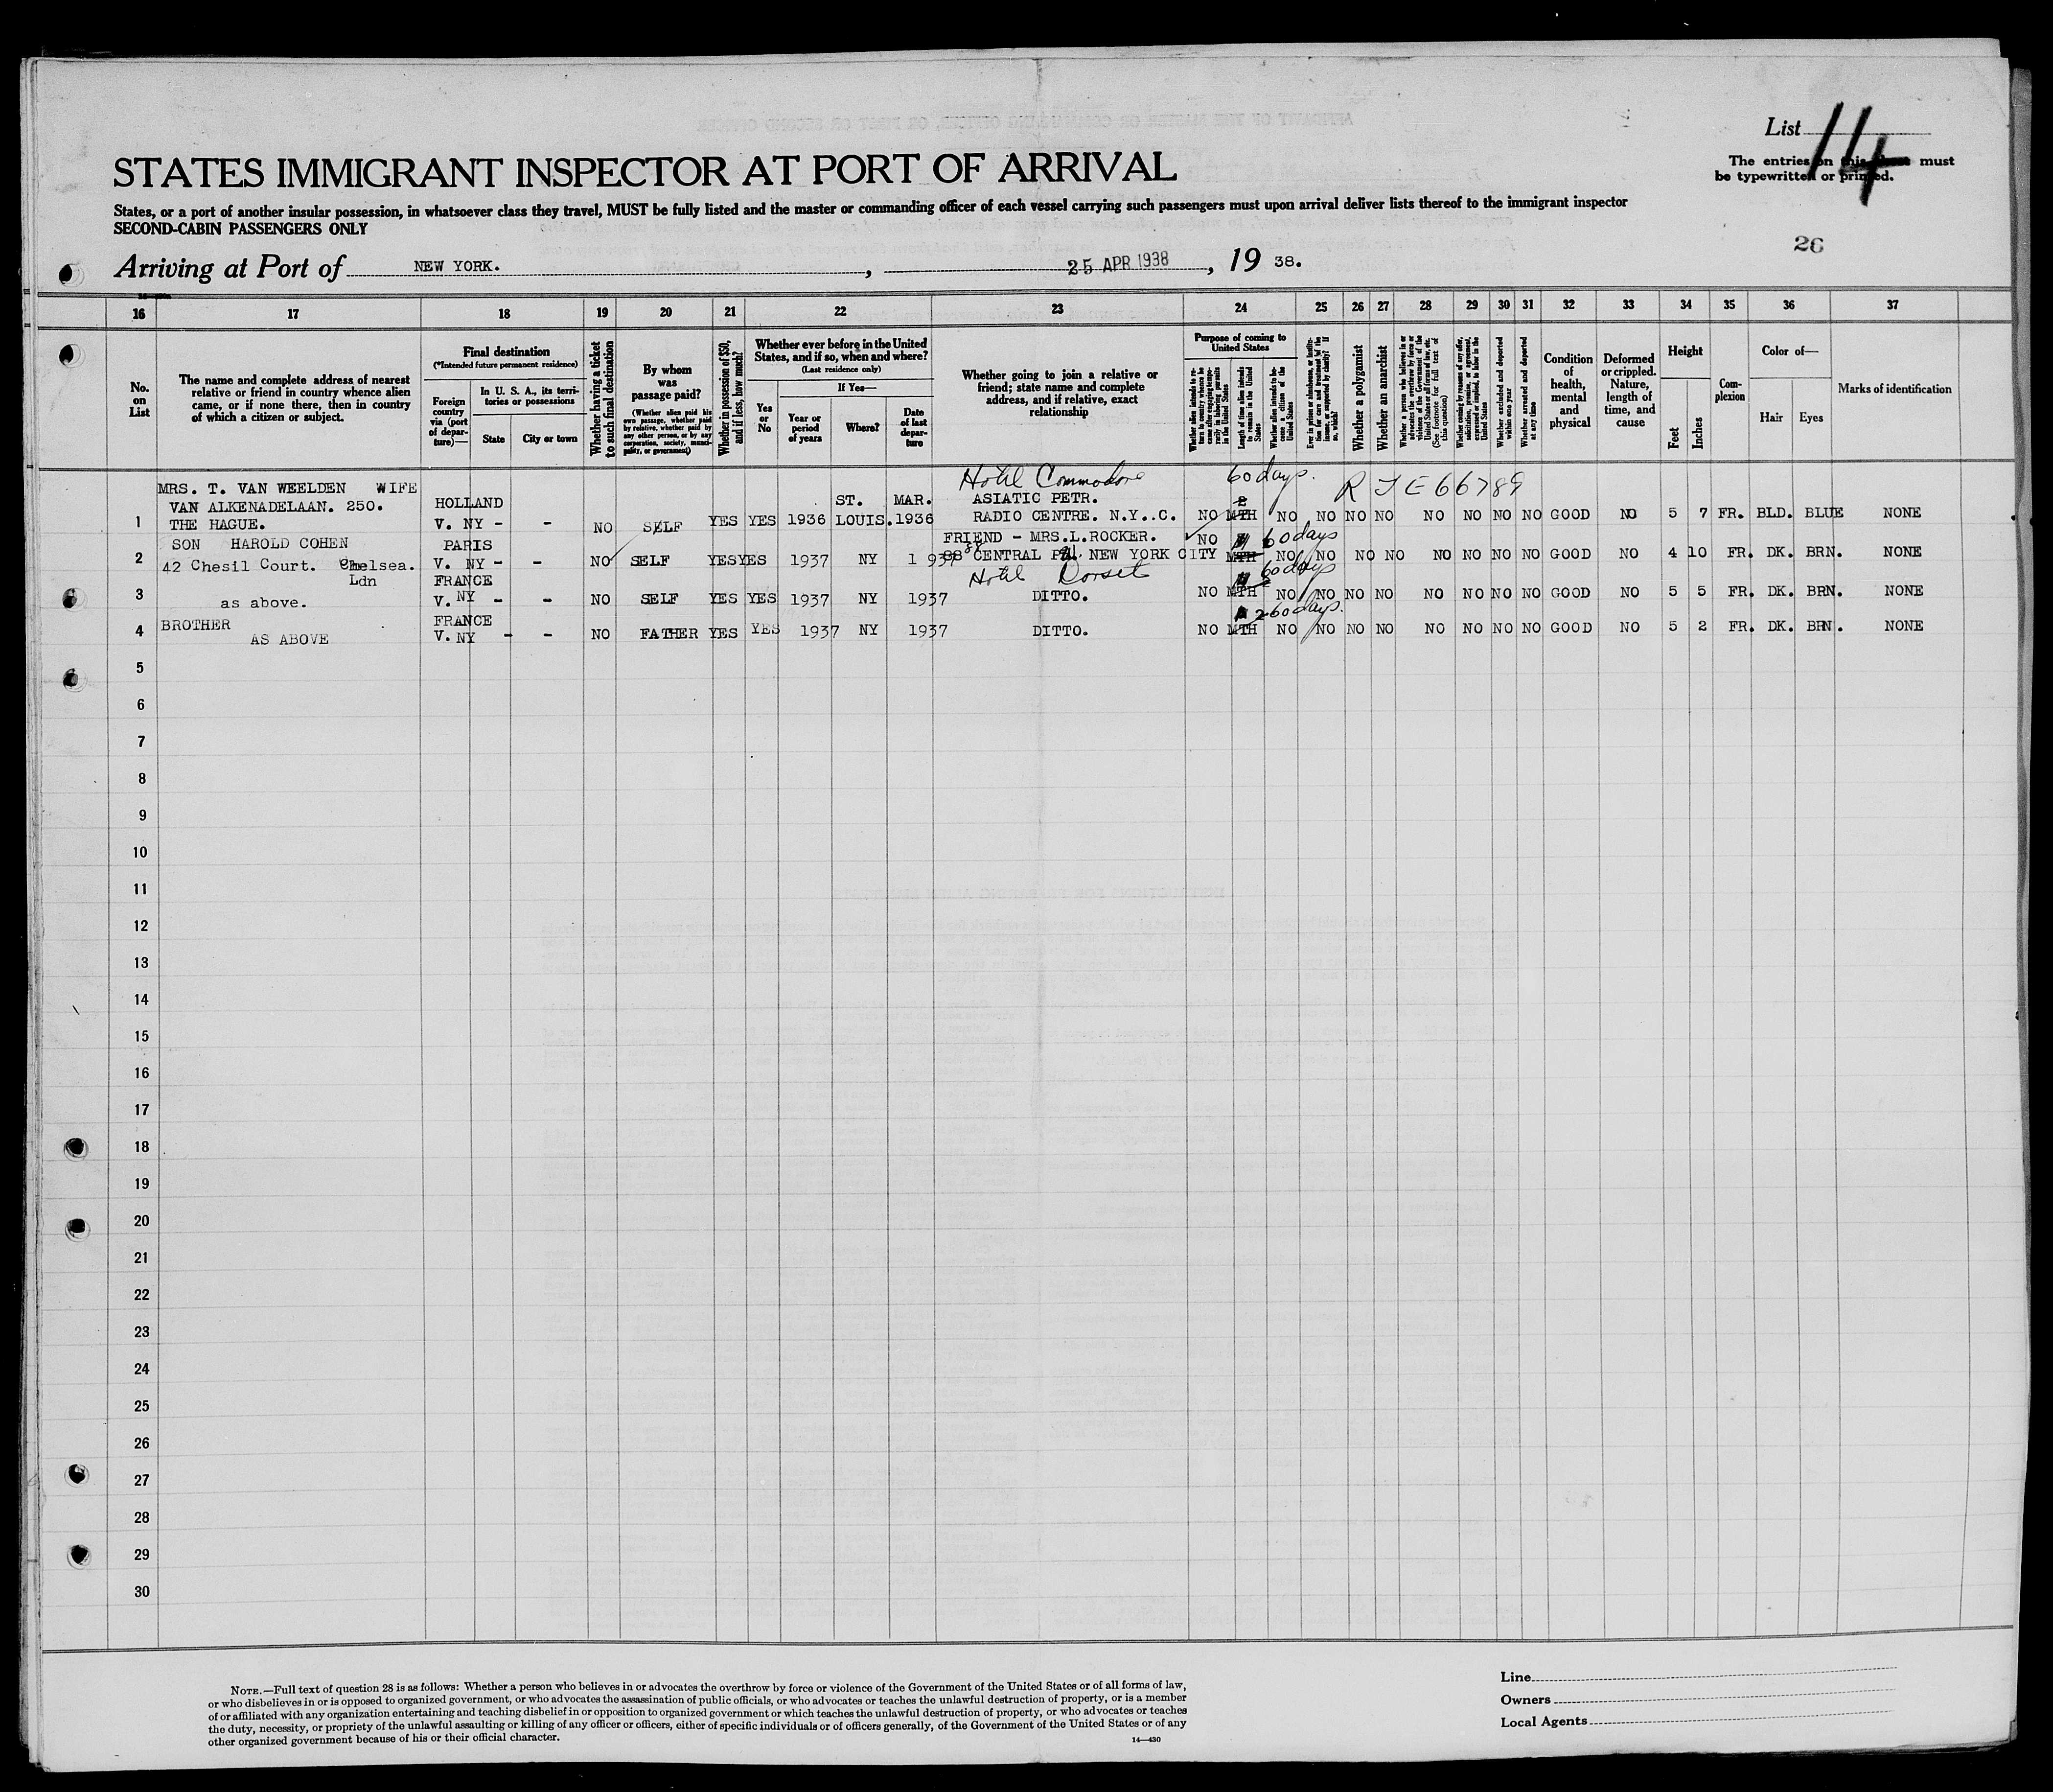 List 14
The entries on this sheet must
be typewritten or printed.
STATES IMMIGRANT INSPECTOR AT PORT OF ARRIVAL
States, or a port of another insular possession, in whatsoever class they travel, MUST be fully listed and the master or commanding officer of each vessel carrying such passengers must upon arrival deliver lists thereof to the immigrant inspector
SECOND-CABIN PASSENGERS ONLY
26
Arriving at Port of NEW YORK. , 25 APR 1938 , 19 38.
16 17 18 19 20 21 22 23 24 25 26 27 28 29 30 31 32 33 34 35 36 37
No.
on
List
The name and complete address of nearest
relative or friend in country whence alien
came, or if none there, then in country
of which a citizen or subject.
Final destination
(*Intended future permanent residence)
Foreign
country
via (port
of depar-
ture)—
In U. S. A., its terri-
tories or possessions
State
City or town
Whether having a ticket
to such final destination
By whom
was
passage paid?
(Whether alien paid his
own passage, whether paid
by relative, whether paid by
any other person, or by any
corporation, society, munici-
pality, or government)
Whether in possession of $50,
and if less, how much?
Whether ever before in the United
States, and if so, when and where?
(Last residence only)
If Yes—
Yes
or
No
Year or
period
of years
Where?
Date
of last
depar-
ture
Whether going to join a relative or
friend; state name and complete
address, and if relative, exact
relationship
Purpose of coming to
United States
Whether alien intends to re-
turn to country whence he
came after engaging tempo-
rarily in laboring pursuits
in the United States
Length of time alien intends
to remain in the United
States
Whether alien intends to be-
come a citizen of the
United States
Ever in prison or almshouse, or institu-
tion for care and treatment of the
insane, or supported by charity? If
so, which?
Whether a polygamist
Whether an anarchist
Whether a person who believes in or
advocates the overthrow by force or
violence of the Government of the
United States or all forms of law, etc.
(See footnote for full text of
this question)
Whether coming by reasons of any offer,
solicitation, promise, or agreement,
expressed or implied, to labor in the
United States
Whether excluded and deported
within one year
Whether arrested and deported
at any time
Condition
of
health,
mental
and
physical
Deformed
or crippled.
Nature,
length of
time, and
cause
Height
Feet
Inches
Com-
plexion
Color of—
Hair Eyes
Marks of identification
MRS. T. VAN WEELDEN WIFE Hotel Commodore 60 days. R J E 66789
VAN ALKENADELAAN. 250. HOLLAND ST. MAR. ASIATIC PETR.
1 THE HAGUE. V. NY - - NO SELF YES YES 1936 LOUIS. 1936 RADIO CENTRE. N.Y..C. NO MTH NO NO NO NO NO NO NO NO GOOD NO 5 7 FR. BLD. BLUE NONE
SON HAROLD COHEN PARIS FRIEND - MRS.L.ROCKER. NO 60 days
2 42 Chesil Court. Chelsea. V. NY - - NO SELF YES YES 1937 NY 1937 88 CENTRAL NEW YORK CITY MTH NO NO NO NO NO NO NO NO GOOD NO 4 10 FR. DK. BRN. NONE
Ldn FRANCE Hotel Dorset 60 days
3 as above. V. NY - - NO SELF YES YES 1937 NY 1937 DITTO. NO MTH NO NO NO NO NO NO NO NO GOOD NO 5 5 FR. DK. BRN. NONE
BROTHER FRANCE 60 days.
4 AS ABOVE V. NY - - NO FATHER YES YES 1937 NY 1937 DITTO. NO MTH NO NO NO NO NO NO NO NO GOOD NO 5 2 FR. DK. BRN. NONE
5
6
7
8
9
10
11
12
13
14
15
16
17
18
19
20
21
22
23
24
25
26
27
28
29
30
NOTE.—Full text of question 28 is as follows: Whether a person who believes in or advocates the overthrow by force or violence of the Government of the United States or of all forms of law,
or who disbelieves in or is opposed to organized government, or who advocates the assassination of public officials, or who advocates or teaches the unlawful destruction of property, or is a member
of or affiliated with any organization entertaining and teaching disbelief in or opposition to organized government or which teaches the unlawful destruction of property, or who advocates or teaches
the duty, necessity, or propriety of the unlawful assaulting or killing of any officer or officers, either of specific individuals or of officers generally, of the Government of the United States or of any
other organized government because of his or their official character.
14—430
Line
Owners
Local Agents